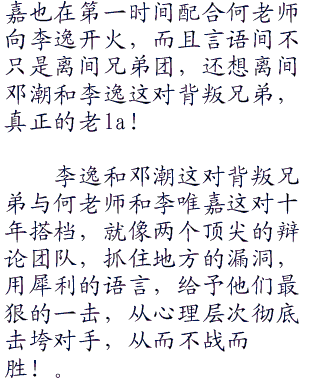 嘉也在第一时间配合何老师
向李逸开火，而且言语间不
只是离间兄弟团，还想离间
邓潮和李逸这对背叛兄弟，
真正的老la！
李逸和邓潮这对背叛兄
弟与何老师和李唯嘉这对十
年搭档，就像两个顶尖的辩
论团队，抓住地方的漏洞，
用犀利的语言，给予他们最
狠的一击，从心理层次彻底
击垮对手，从而不战而
胜！。